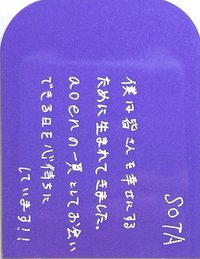 SOTA
僕は皆さんを幸せにする
ために生まれてきました。
aoenの一員としてお会い
できる日を心待ちに
しています!!